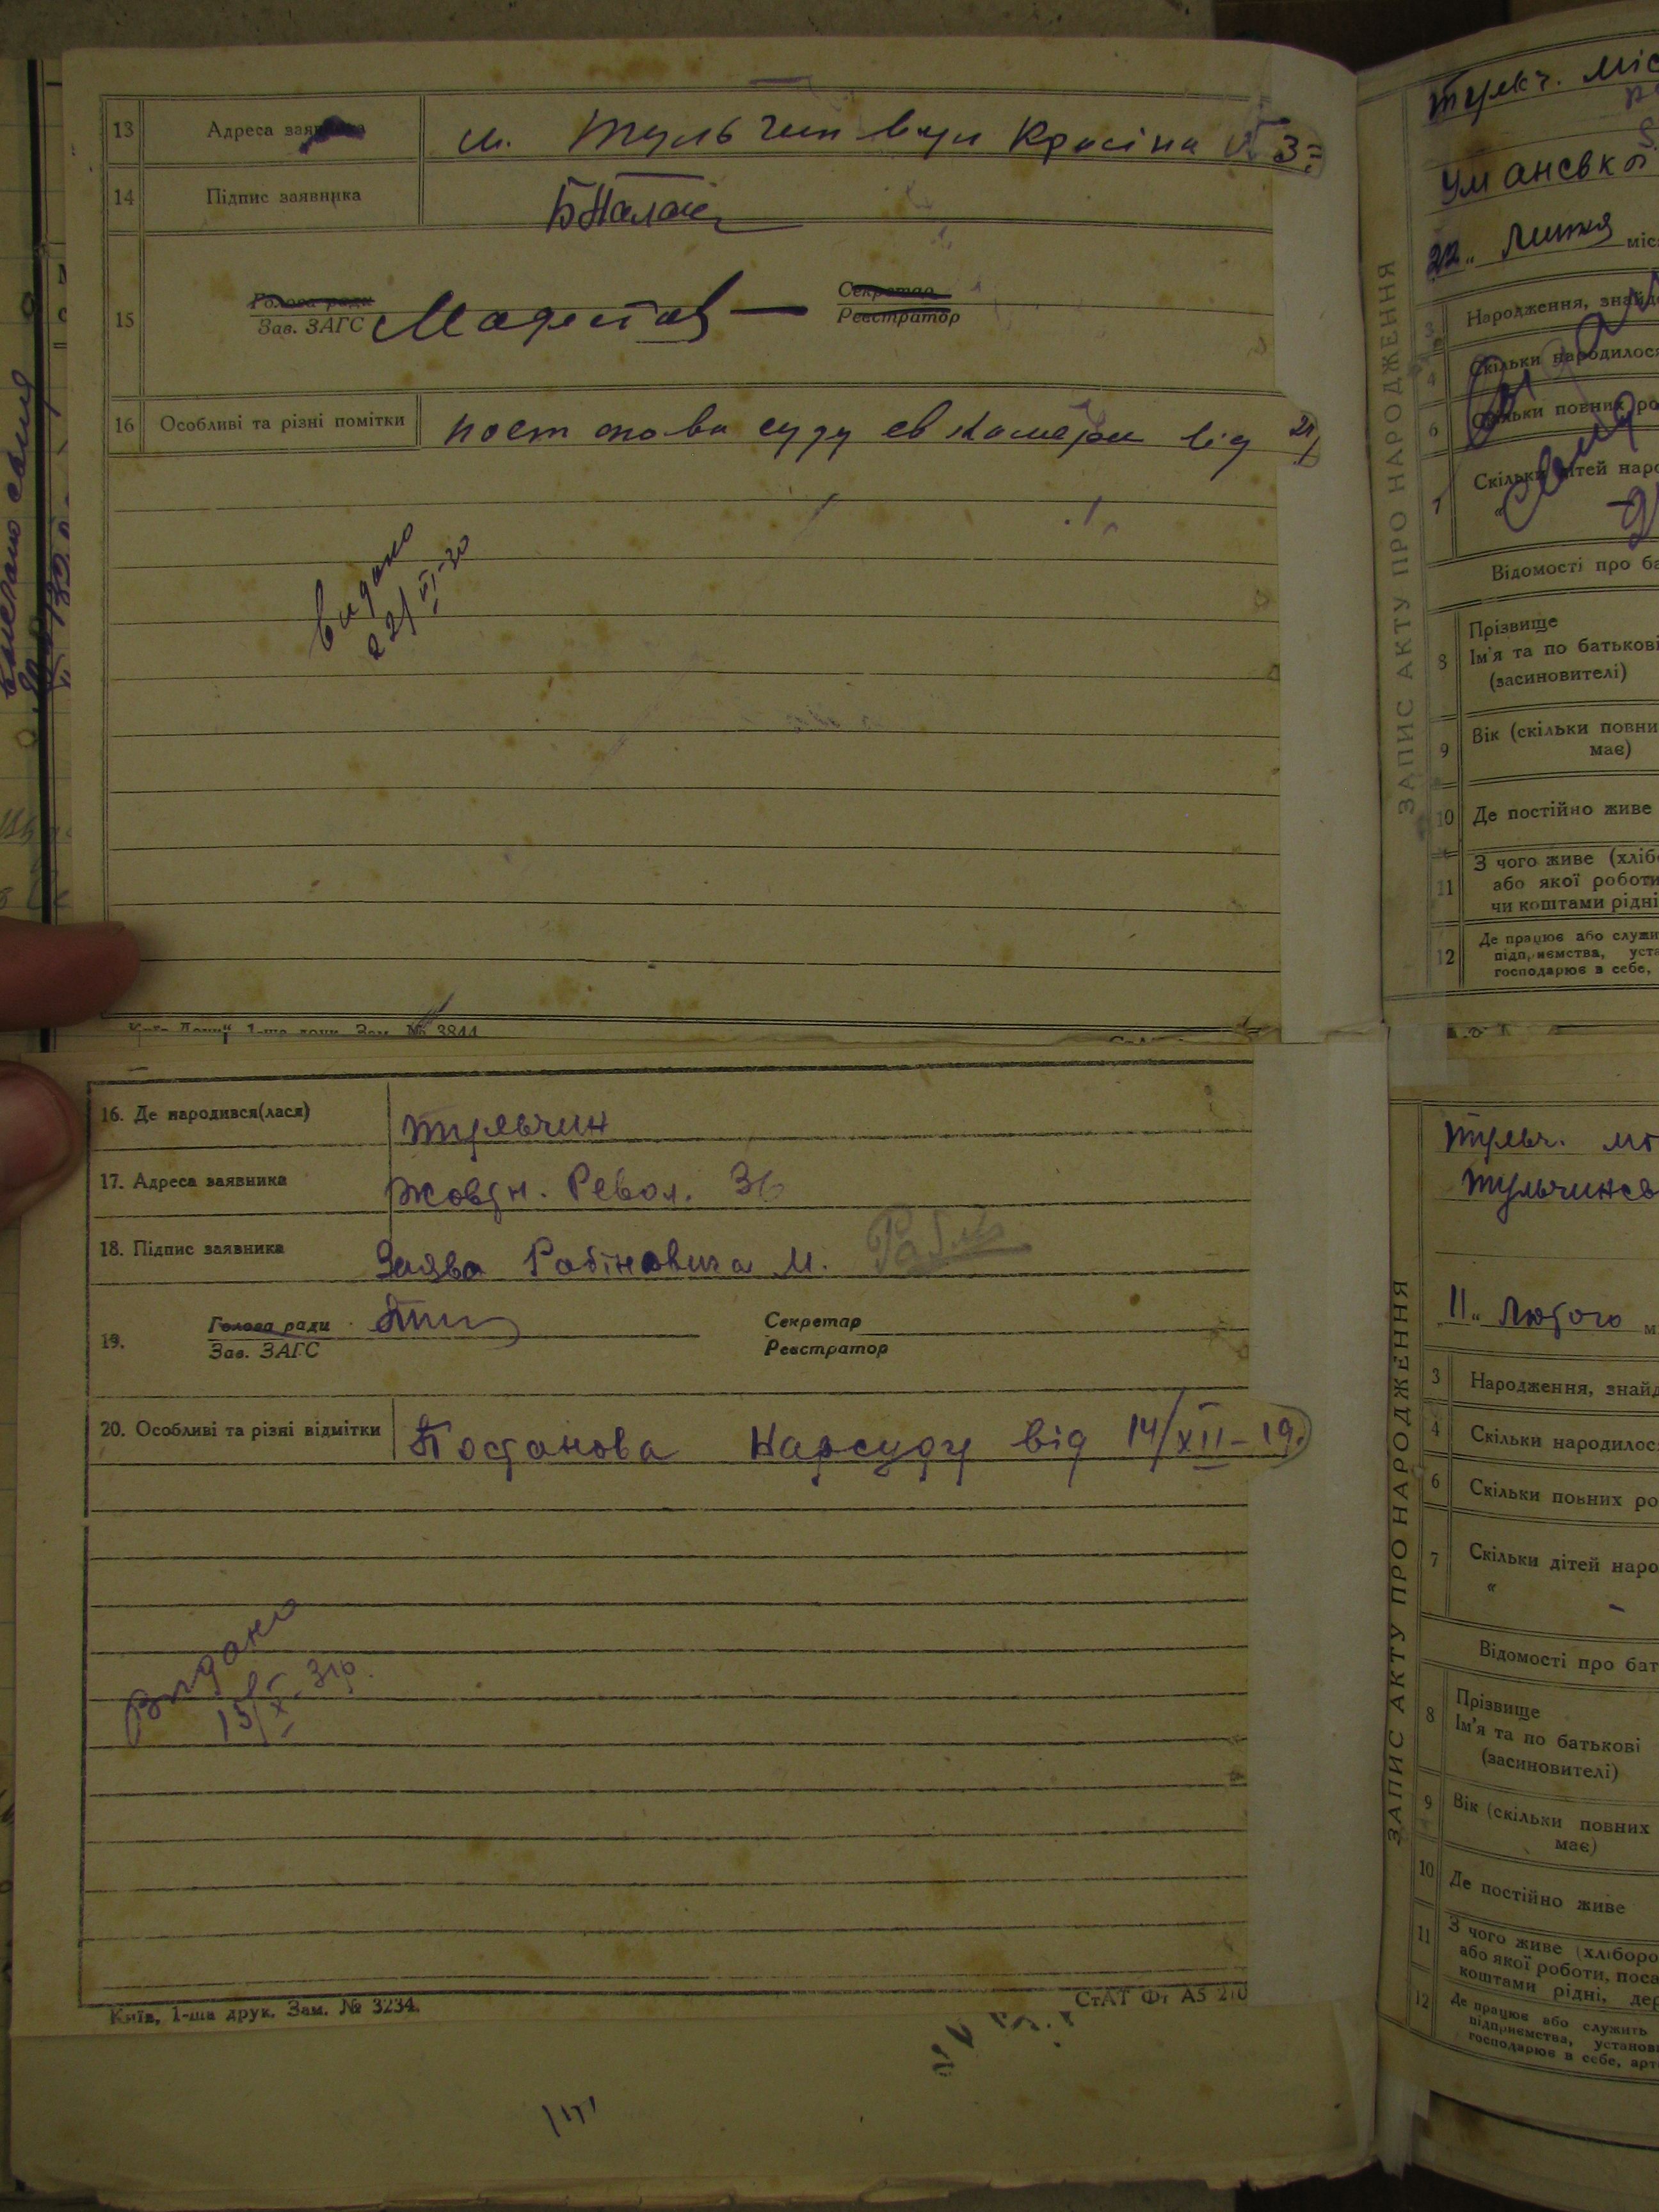 13 Адреса заявника м. Тульчин вул Красіна № 3
14 Підпис заявника
15 Голова ради Секретар
Зав. ЗАГС Реєстратор
16 Особливі та різні помітки суду від 21/
видано
22/VI-30
1-ша друк. Зам. № 3844
16. Де народився(лася) Тульчин
17. Адреса заявника Жовтн. Револ. 36
18. Підпис заявника Заява Рабіновича М.
19. Голова ради Секретар
Зав. ЗАГС Реєстратор
20. Особливі та різні відмітки Постанова Нарсуду від 14/XII-19
Видано
15/X-31р.
Київ, 1-ша друк. Зам. № 3234.
СтАТ Фт А5 210
ЗАПИС АКТУ ПРО НАРОДЖЕННЯ
Уманської
22 Липня міс
3 Народження, знайд
4 Скільки народилося
6 Скільки повних ро
7 Скільки дітей наро
"
Відомості про ба
8 Прізвище
Ім'я та по батькові
(засиновителі)
9 Вік (скільки повни
має)
10 Де постійно живе
11 З чого живе (хлібо
або якої роботи
чи коштами рідні
12 Де працює або служи
підприємства, уста
господарює в себе,
ЗАПИС АКТУ ПРО НАРОДЖЕННЯ
Тульч. мі
Тульчинсь
11 Лютого м
3 Народження, знайд
4 Скільки народилос
6 Скільки повних ро
7 Скільки дітей наро
"
Відомості про бат
8 Прізвище
Ім'я та по батькові
(засиновителі)
9 Вік (скільки повних
має)
10 Де постійно живе
11 З чого живе (хліборо
або якої роботи, поса
коштами рідні, дер
12 Де працює або служить
підприємства, установ
господарює в себе, арт